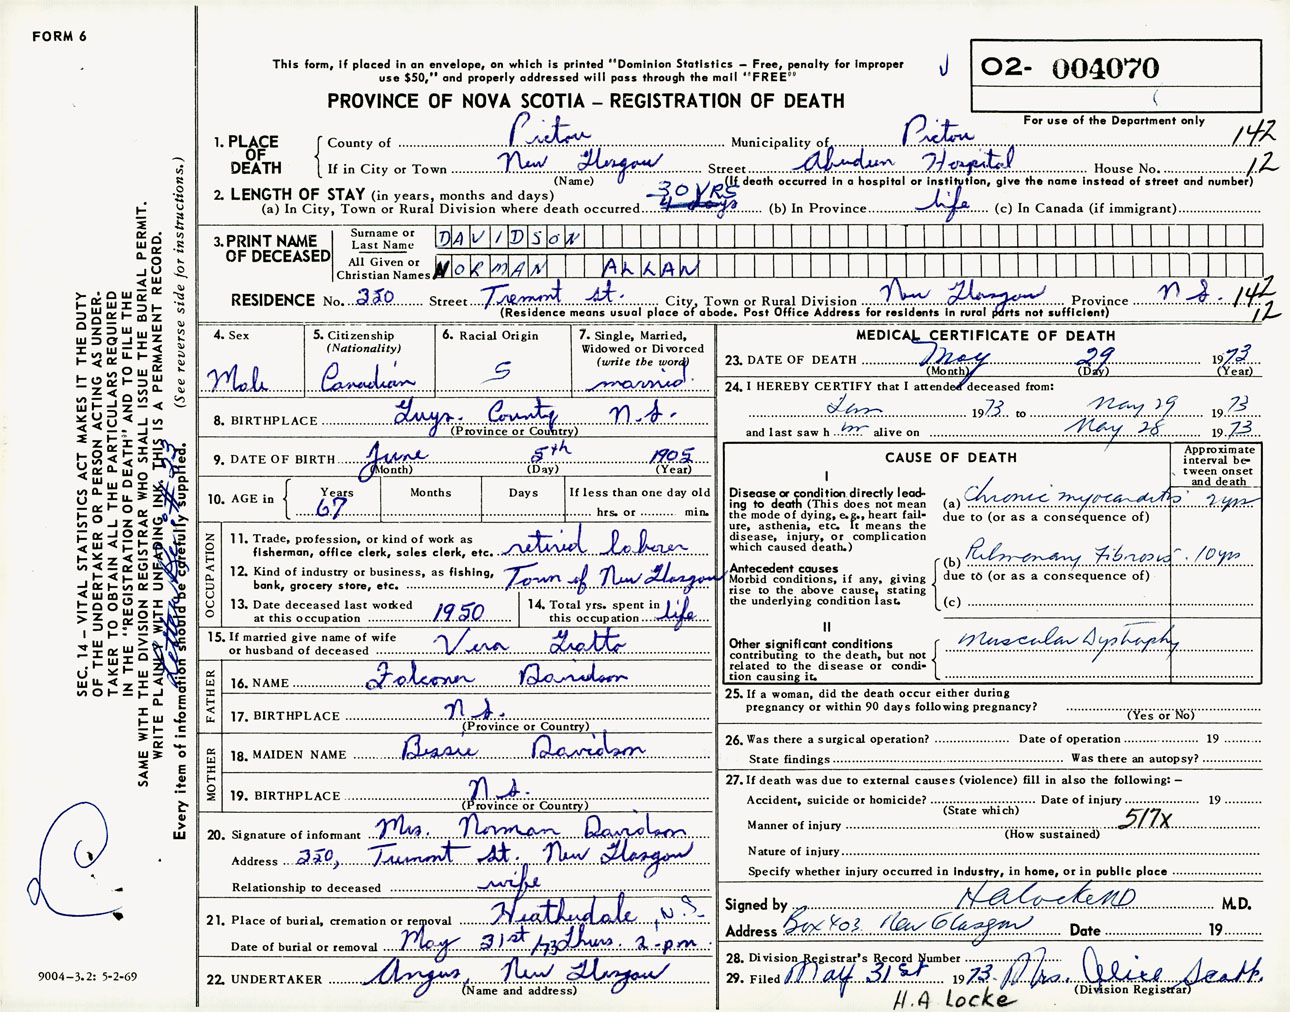 FORM 6
This form, if placed in an envelope, on which is printed "Dominion Statistics – Free, penalty for improper
use $50," and properly addressed will pass through the mail "FREE"
O2- 004070
PROVINCE OF NOVA SCOTIA – REGISTRATION OF DEATH
For use of the Department only
1. PLACE OF DEATH County of Pictou Municipality of Pictou 142
If in City or Town New Glasgow Street Aberdeen Hospital House No. 12
(Name) (If death occurred in a hospital or institution, give the name instead of street and number)
2. LENGTH OF STAY (in years, months and days) 30 YRS
(a) In City, Town or Rural Division where death occurred 4 days (b) In Province life (c) In Canada (if immigrant)
3. PRINT NAME OF DECEASED Surname or Last Name DAVIDSON
All Given or Christian Names NORMAN ALLAN
RESIDENCE No. 350 Street Tremont St. City, Town or Rural Division New Glasgow Province N S. 142
(Residence means usual place of abode. Post Office Address for residents in rural parts not sufficient) 12
4. Sex
Male
5. Citizenship
(Nationality)
Canadian
6. Racial Origin
S
7. Single, Married,
Widowed or Divorced
(write the word)
married.
8. BIRTHPLACE Guys. County N.S.
(Province or Country)
9. DATE OF BIRTH June 5th 1905
(Month) (Day) (Year)
10. AGE in Years Months Days If less than one day old
67 hrs. or min.
OCCUPATION
11. Trade, profession, or kind of work as
fisherman, office clerk, sales clerk, etc. retired laborer
12. Kind of industry or business, as fishing,
bank, grocery store, etc. Town of New Glasgow
13. Date deceased last worked
at this occupation 1950
14. Total yrs. spent in
this occupation life
15. If married give name of wife
or husband of deceased Vera Gratto
FATHER
16. NAME Falconer Davidson
17. BIRTHPLACE N.S.
(Province or Country)
MOTHER
18. MAIDEN NAME Bessie Davidson
19. BIRTHPLACE N.S.
(Province or Country)
20. Signature of informant Mrs. Norman Davidson
Address 350, Tremont St. New Glasgow
Relationship to deceased wife
21. Place of burial, cremation or removal Heatherdale, N.S.
Date of burial or removal May 31st /73 Thurs. 2 p.m.
22. UNDERTAKER Angus, New Glasgow
(Name and address)
MEDICAL CERTIFICATE OF DEATH
23. DATE OF DEATH May 29 1973
(Month) (Day) (Year)
24. I HEREBY CERTIFY that I attended deceased from:
Jan 1973 to May 29 1973
and last saw him alive on May 28 1973
CAUSE OF DEATH
Approximate
interval be-
tween onset
and death
I
Disease or condition directly lead-
ing to death (This does not mean
the mode of dying, e.g., heart fail-
ure, asthenia, etc. It means the
disease, injury, or complication
which caused death.)
(a) Chronic myocarditis 2 yrs
due to (or as a consequence of)
Antecedent causes
Morbid conditions, if any, giving
rise to the above cause, stating
the underlying condition last.
(b) Pulmonary Fibrosis. 10 yrs
due to (or as a consequence of)
(c)
II
Other significant conditions
contributing to the death, but not
related to the disease or condi-
tion causing it.
Muscular Dystrophy
25. If a woman, did the death occur either during
pregnancy or within 90 days following pregnancy?
(Yes or No)
26. Was there a surgical operation? Date of operation 19
State findings Was there an autopsy?
27. If death was due to external causes (violence) fill in also the following: –
Accident, suicide or homicide? Date of injury 19
(State which)
Manner of injury 517X
(How sustained)
Nature of injury
Specify whether injury occurred in industry, in home, or in public place
Signed by HA Locke MD M.D.
Address Box 403 New Glasgow Date 19
28. Division Registrar's Record Number
29. Filed May 31st 1973. Mrs. Alice
(Division Registrar)
H.A Locke
SEC. 14 – VITAL STATISTICS ACT MAKES IT THE DUTY
OF THE UNDERTAKER OR PERSON ACTING AS UNDER-
TAKER TO OBTAIN ALL THE PARTICULARS REQUIRED
IN THE "REGISTRATION OF DEATH" AND TO FILE THE
SAME WITH THE DIVISION REGISTRAR WHO SHALL ISSUE THE BURIAL PERMIT.
WRITE PLAINLY WITH UNFADING INK. THIS IS A PERMANENT RECORD.
Every item of information should be carefully supplied. (See reverse side for instructions.)
9004–3.2: 5-2-69